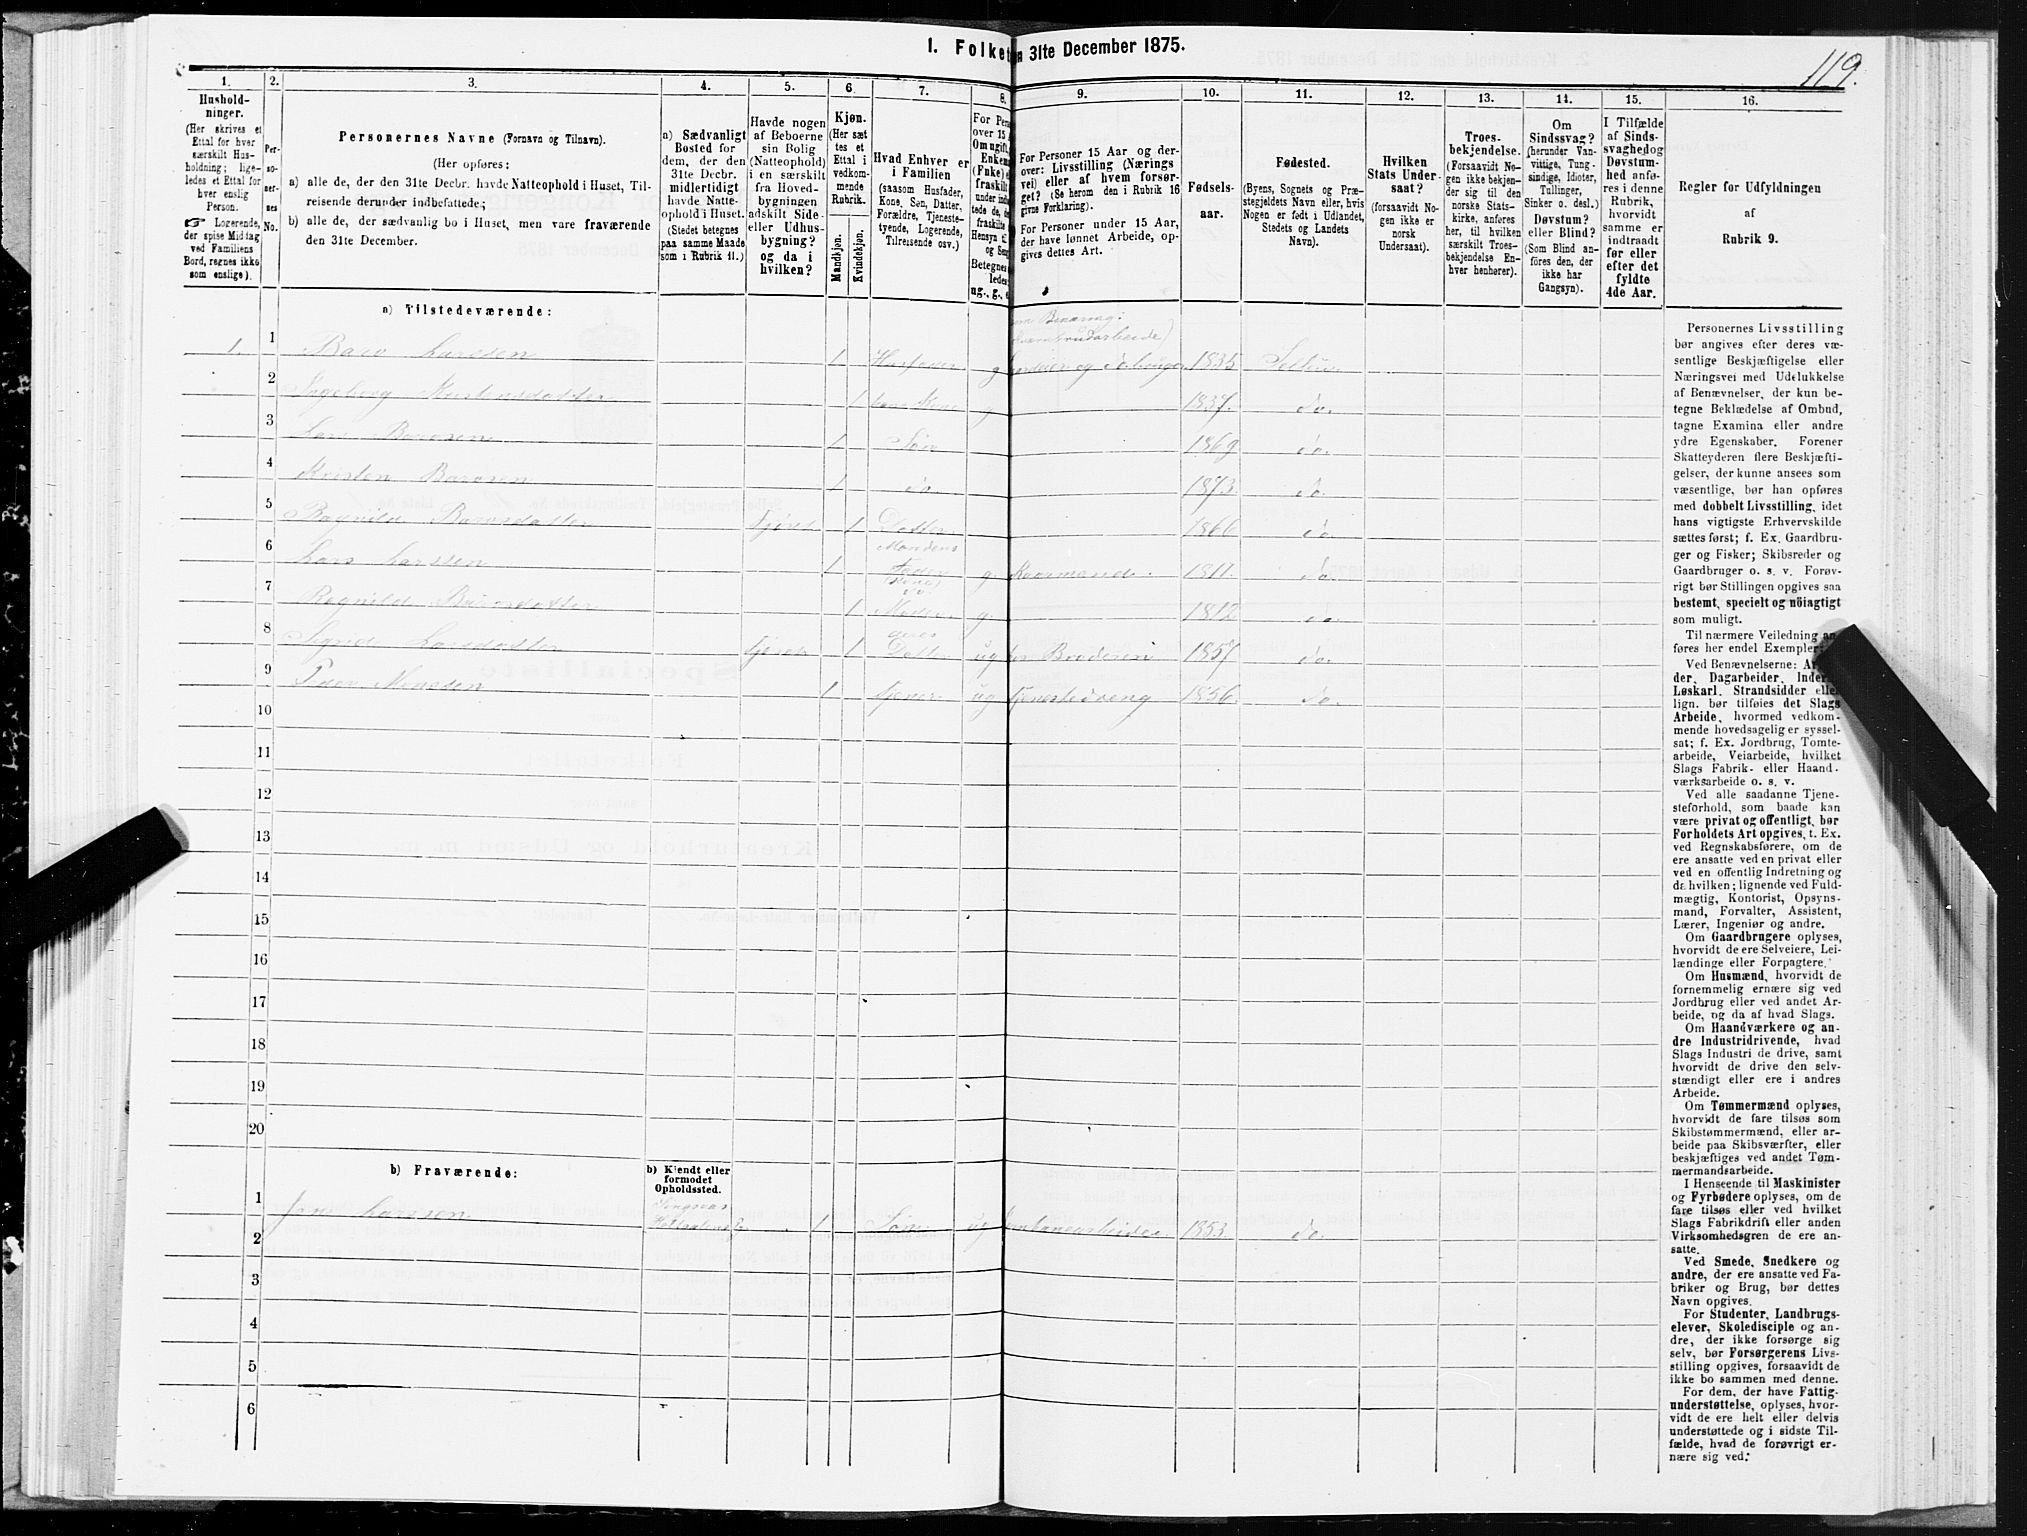 1. Folket
n 31te December 1875.
119.
1.
2.
3.
4.
5.
6.
7.
8.
9.
10.
11.
12.
13.
14.
15.
16.
Hushold-
ninger.
(Her skrives et
Ettal for hver
særskilt Hus-
holdning; lige-
ledes et Ettal for
hver enslig
Person.
☞ Logerende,
der spise Middag
ved Familiens
Bord, regnes ikke
som enslige).
Per-
so-
ner-
nes
No.
Personernes Navne (Fornavn og Tilnavn).
(Her opføres:
a) alle de, der den 31te Decbr. havde Natteophold i Huset, Til-
reisende derunder indbefattede;
b) alle de, der sædvanlig bo i Huset, men vare fraværende
den 31te December.
a) Sædvanligt
Bosted for
dem, der den
31te Decbr.
midlertidigt
havde Natte-
ophold i Huset.
(Stedet betegnes
paa samme Maade
som i Rubrik 11.)
Havde nogen
af Beboerne
sin Bolig
(Natteophold)
i en særskilt
fra Hoved-
bygningen
adskilt Side-
eller Udhus-
bygning?
og da i
hvilken?
Kjøn.
(Her sæt
tes et
Ettal i
vedkom-
mende
Rubrik.
Mandkjøn.
Kvindekjøn.
Hvad Enhver er
i Familien
(saasom Husfader,
Kone, Søn, Datter,
Forældre, Tjeneste-
tyende, Logerende,
Tilreisende osv.)
For Pers
over 15
Om ugift,
Enkem
(Fuke)
fraskilt
under
tede de,
fraskilte
Hensyn til
og Seng
Betegnes
ledes:
ug., g., e
For Personer 15 Aar og der-
over: Livsstilling (Nærings
vei) eller af hvem forsør-
get? (Se herom den i Rubrik 16
givne Forklaring).
For Personer under 15 Aar,
der have lønnet Arbeide, op-
gives dettes Art.
Fødsels-
aar.
Fødested.
(Byens, Sognets og Præ-
stegjeldets Navn eller, hvis
Nogen er født i Udlandet,
Stedets og Landets
Navn).
Hvilken
Stats Under-
saat?
(forsaavidt No-
gen ikke er
norsk
Undersaat).
Troes-
bekjendelse.
(Forsaavidt No-
gen ikke bekjen-
der sig til den
norske Stats-
kirke, anføres
her, til hvilken
særskilt Troes-
bekjendelse En-
hver henhører).
Om
Sindssvag?
(herunder Van-
vittige, Tung-
sindige, Idioter,
Tullinger,
Sinker o. desl.)
Døvstum?
eller Blind?
(Som Blind an-
føres den, der
ikke har
Gangsyn).
I Tilfælde
af Sinds-
svaghed og
Døvstum-
hed anfø-
res i denne
Rubrik,
hvorvidt
samme er
indtraadt
før eller
efter det
fyldte
4de Aar.
Regler for Udfyldningen
af
Rubrik 9.
a) Tilstedeværende:
1. 1 Baro Larssen 1 Husfader g Gaardeier og 1835 Seljord
2 Ingeborg 1 hans Kone g 1837. do.
3 Lars Barosen 1 Søn 1869 do.
4 Kristen Barosen 1 do. 1873. do.
5 Ragnild Barosdatter 1 Datter 1866 do.
Mandens
6 Lars Larssen 1 Fader g. 1811. do.
7 Ragnild Barosdatter 1 Moder g. 1812 do.
deres
8 Signe Larsdatter 1 Datter ug hos Broderen 1857 do.
9 Peder Monssen 1 tjener ug tjenestedreng 1856. do.
10
11
12
13
14
15
16
17
18
19
20
b) Fraværende:
b) Kjendt eller
formodet
Opholdssted.
1 Jens Larssen 1 Søn ug Jernbanearbeider 1853. do.
2
3
4
5
6
Personernes Livsstilling
bør angives efter deres væ-
sentlige Beskjæftigelse eller
Næringsvei med Udelukkelse
af Benævnelser, der kun be-
tegne Beklædelse af Ombud,
tagne Examina eller andre
ydre Egenskaber. Forener
Skatteyderen flere Beskjæfti-
gelser, der kunne ansees som
væsentlige, bør han opføres
med dobbelt Livsstilling, idet
hans vigtigste Erhvervskilde
sættes først; f. Ex. Gaardbru-
ger og Fisker; Skibsreder og
Gaardbruger o. s. v. Forøv-
rigt bør Stillingen opgives saa
bestemt, specielt og nöiagtigt
som muligt.
Til nærmere Veiledning an-
føres her endel Exempler:
Ved Benævnelserne: Ar
der, Dagarbeider, Inder
Løskarl, Strandsidder eller
lign. bør tilføies det Slags
Arbeide, hvormed vedkom-
mende hovedsagelig er syssel-
sat; f. Ex. Jordbrug, Tomte-
arbeide, Veiarbeide, hvilket
Slags Fabrik- eller Haand-
værksarbeide o. s. v.
Ved alle saadanne Tjene-
steforhold, som baade kan
være privat og offentligt, bør
Forholdets Art opgives, t. Ex.
ved Regnskabsførere, om de
ere ansatte ved en privat eller
ved en offentlig Indretning og
da hvilken; lignende ved Fuld-
mægtig, Kontorist, Opsyns-
mand, Forvalter, Assistent,
Lærer, Ingeniør og andre.
Om Gaardbrugere oplyses,
hvorvidt de ere Selveiere, Lei-
lændinge eller Forpagtere.
Om Husmænd, hvorvidt de
fornemmelig ernære sig ved
Jordbrug eller ved andet Ar-
beide, og da af hvad Slags.
Om Haandværkere og an-
dre Industridrivende, hvad
Slags Industri de drive, samt
hvorvidt de drive den selv-
stændigt eller ere i andres
Arbeide.
Om Tømmermænd oplyses,
hvorvidt de fare tilsøs som
Skibstømmermænd, eller ar-
beide paa Skibsværfter, eller
beskjæftiges ved andet Tøm-
mermandsarbeide.
I Henseende til Maskinister
og Fyrbødere oplyses, om de
fare tilsøs eller ved hvilket
Slags Fabrikdrift eller anden
Virksomhedsgren de ere an-
satte.
Ved Smede, Snedkere og
andre, der ere ansatte ved Fa-
briker og Brug, bør dettes
Navn opgives.
For Studenter, Landbrugs-
elever, Skoledisciple og an-
dre, der ikke forsørge sig
selv, bør Forsørgerens Livs-
stilling opgives, forsaavidt de
ikke bo sammen med denne.
For dem, der have Fattig-
understøttelse, oplyses, hvor-
vidt de ere helt eller delvis
understøttede og i sidste Til-
fælde, hvad de forøvrigt er-
nære sig ved.